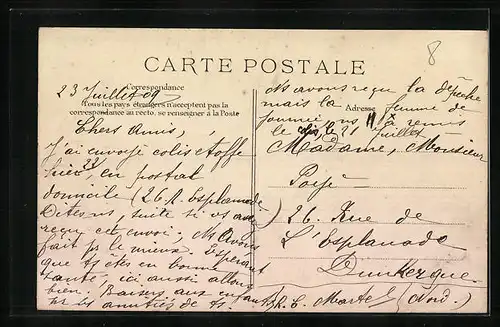 8
CARTE POSTALE
Correspondance
23 Juillet 09
Tous les pays étrangers n'acceptent pas la
correspondance au recto, se renseigner à la Poste
Chers Amis,
J'ai envoyé colis étoffe
hier 22, en postal
domicile (26 R. Esplanade)
Dites ns, suite si vs avez
reçu cet envoi. Ns avons
fait ps le mieux. Espérant
que vs êtes en bonne
santé, ici aussi allons
bien. Baisers aux enfants
et amitiés de ts.
Ns avons reçu la dépêche
mais la femme de
Adresse
journée ns l'a remis
le 21 Juillet
Madame, Monsieur
26. Rue de
L'Esplanade
Dunkerque
(Nord)